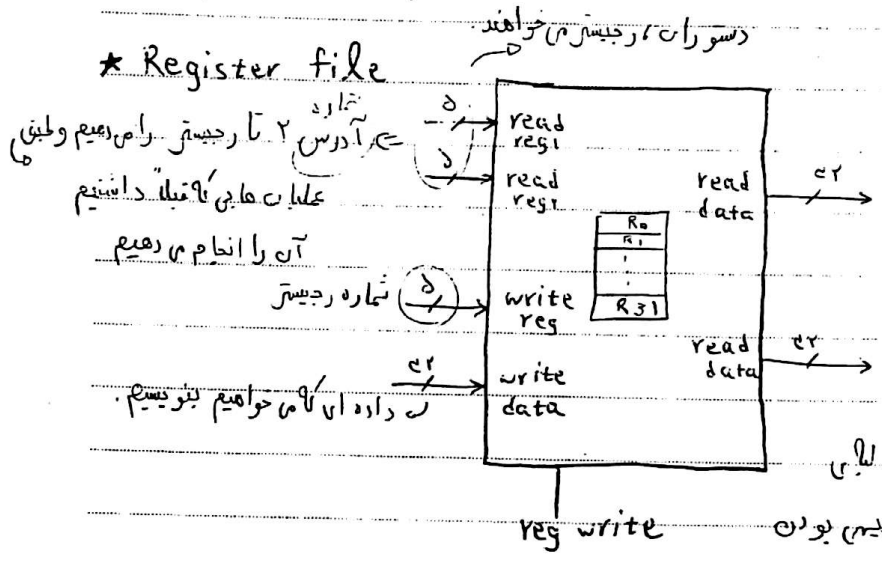 دستورات، رجیستر می خواهند.
★ Register file
شماره
⇐ آدرس ۲ تا رجیستر را می دهیم و طبق
عملیات هایی که قبلاً داشتیم
آن را انجام می دهیم
۵
read
reg1
۵
read
reg2
read
data
۳۲
R0
R1
R31
شماره رجیستر
۵
write
reg
read
data
۳۲
۳۲
write
data
داده ای که می خواهیم بنویسیم.
reg write
بودن